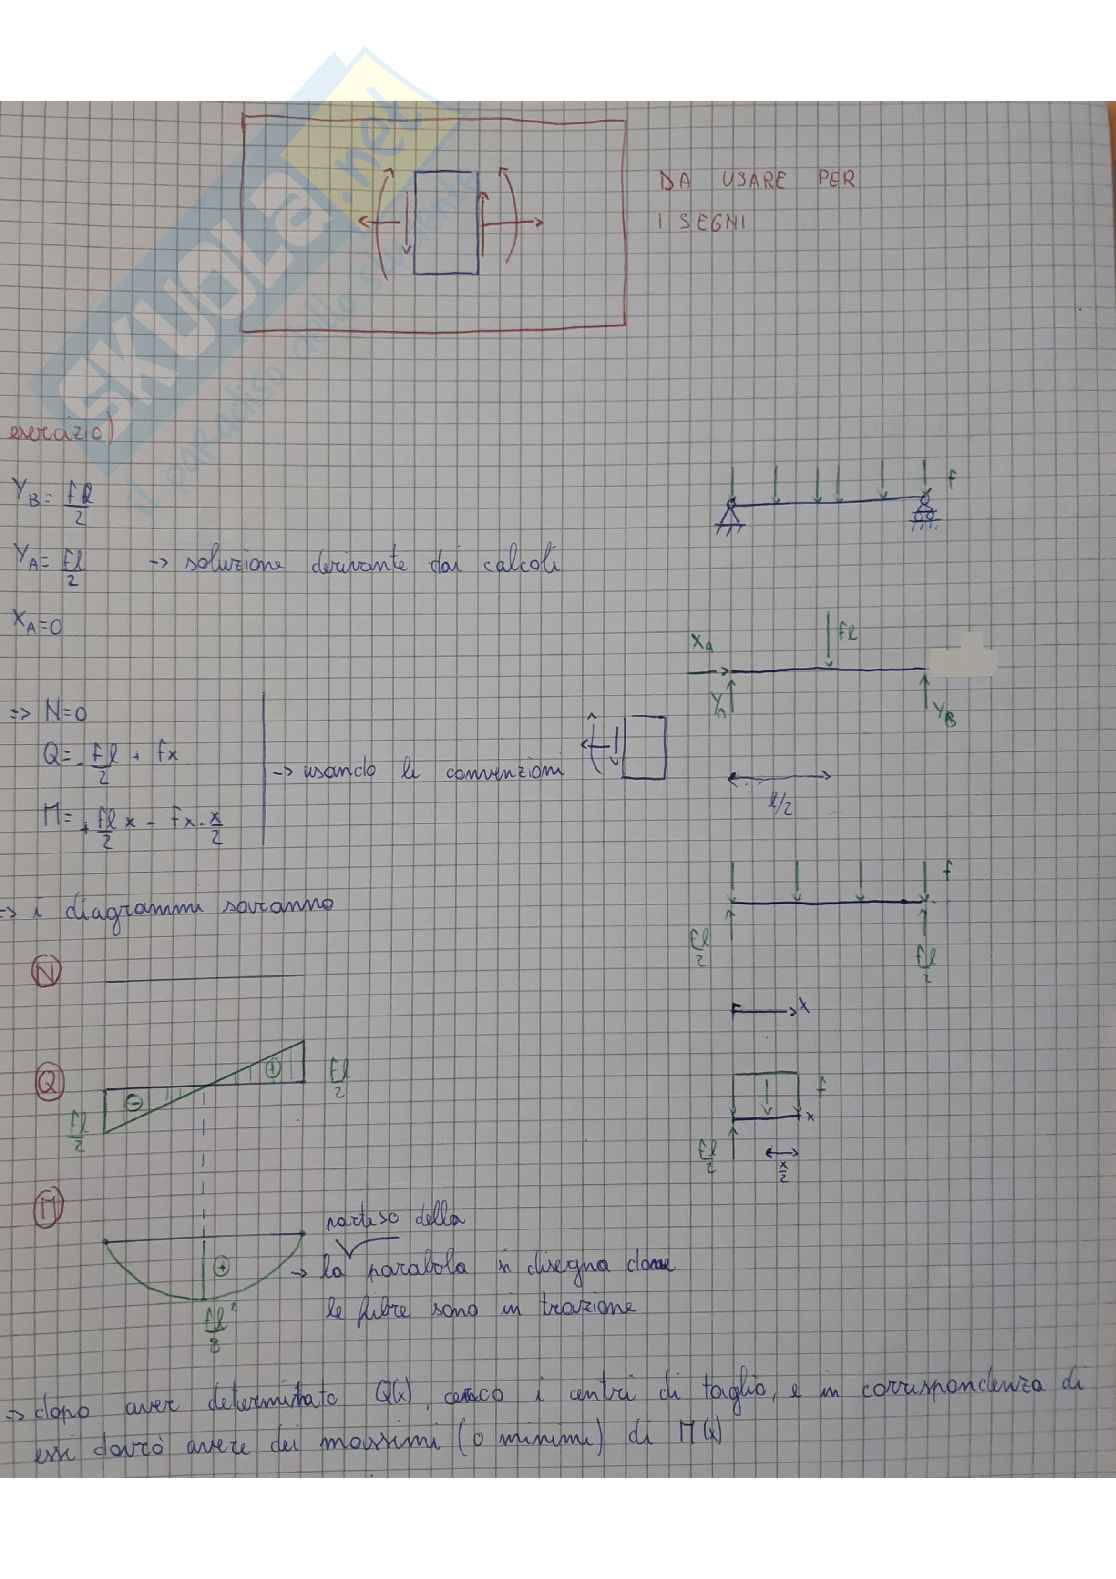 SKUOLA.net
il paradiso dello studente
DA USARE PER
I SEGNI
esercizio)
Y_B = fl/2
f
Y_A = fl/2 -> soluzione derivante dai calcoli
X_A = 0
fl
X_A
Y_A
Y_B
=> N=0
Q = - fl/2 + fx
-> usando le convenzioni
l/2
M = + fl/2 x - fx · x/2
f
=> i diagrammi saranno
fl/2
fl/2
N
x
Q
⊖
⊕
fl/2
fl/2
f
x
fl/2
x/2
M
⊕
fl²/8
della
-> la parabola si disegna dove
le fibre sono in trazione
=> dopo aver determinato Q(x), cerco i centri di taglio, e in corrispondenza di
essi dovrò avere dei massimi (o minimi) di M(x)